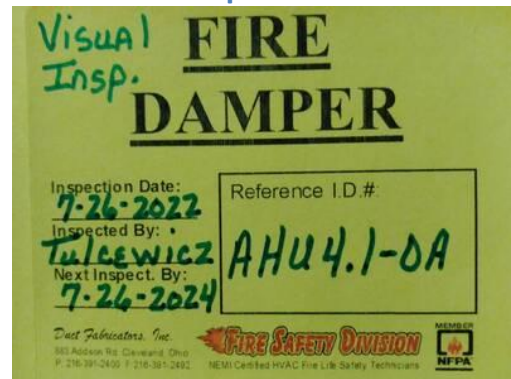 Visual
Insp.
FIRE
DAMPER
Inspection Date:
7-26-2022
Inspected By:
Tulcewicz
Next Inspect. By:
7-26-2024
Reference I.D.#:
AHU4.1-OA
Duct Fabricators, Inc.
883 Addison Rd. Cleveland, Ohio
P. 216-391-2400 F. 216-391-2492
FIRE SAFETY DIVISION
NEMI Certified HVAC Fire Life Safety Technicians
MEMBER
NFPA